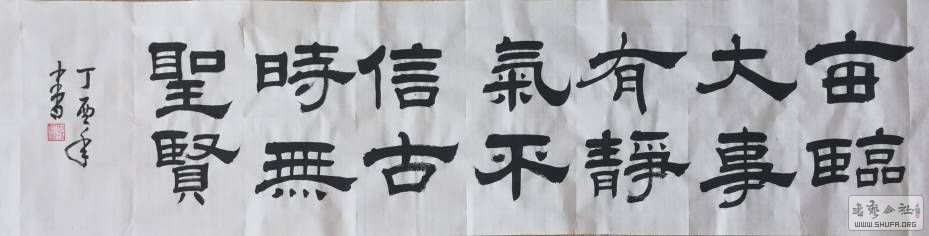 每臨
大事
有靜
氣不
信古
時無
聖賢
丁酉年
書
书艺公社
WWW.SHUFA.ORG